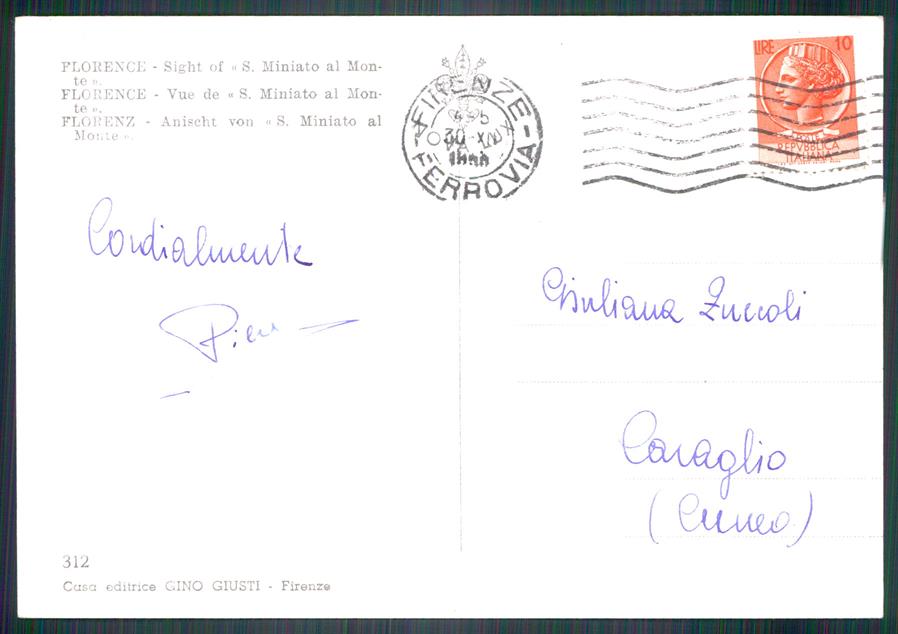 FLORENCE - Sight of « S. Miniato al Mon-
te ».
FLORENCE - Vue de « S. Miniato al Mon-
te ».
FLORENZ - Anischt von « S. Miniato al
Monte ».
FIRENZE
30 XII
FERROVIA
LIRE 10
REPVBBLICA
ITALIANA
Cordialmente
Giuliana Zuccoli
Caraglio
(Cuneo)
312
Casa editrice GINO GIUSTI - Firenze